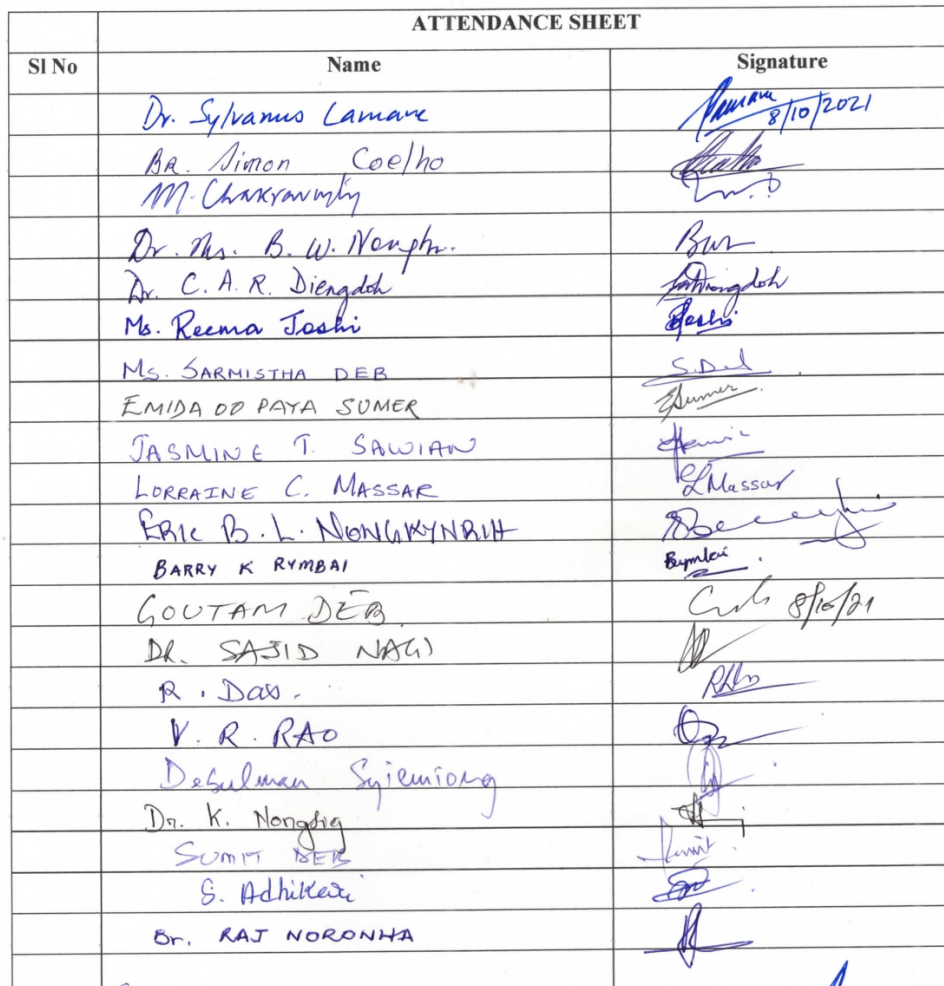 ATTENDANCE SHEET
Sl No Name Signature
Dr. Sylvanus Lamare 8/10/2021
BR. Simon Coelho
M. Chakravorty
Dr. Ms. B. W.
Dr. C. A. R. Diengdoh
Ms. Reema Joshi Joshi
Ms. SARMISTHA DEB S.Deb
EMIDA OO PAYA SUMER ESumer
JASMINE T. SAWIAN
LORRAINE C. MASSAR LMassar
ERIC B. L. NONGKYNRIH
BARRY K RYMBAI Rymbai
GOUTAM DEB 8/10/21
DR. SAJID NAGI
R. Das.
V. R. RAO
Desulman Syiemiong
Dr. K. Nongbig
SUMIT DEB Sumit
S. Adhikari
Br. RAJ NORONHA